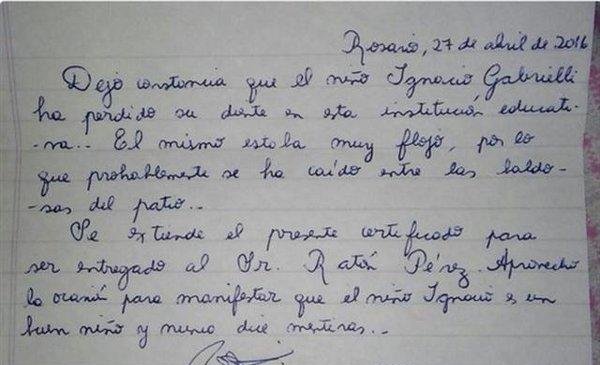 Rosario, 27 de abril de 2016
Dejo constancia que el niño Ignacio Gabrielli
ha perdido su diente en esta institución educati-
-va.. El mismo estaba muy flojo, por lo
que probablemente se ha caído entre las baldo-
-sas del patio..
Se extiende el presente certificado para
ser entregado al Sr. Ratón Pérez. Aprovecho
la ocasión para manifestar que el niño Ignacio es un
buen niño y nunca dice mentiras..